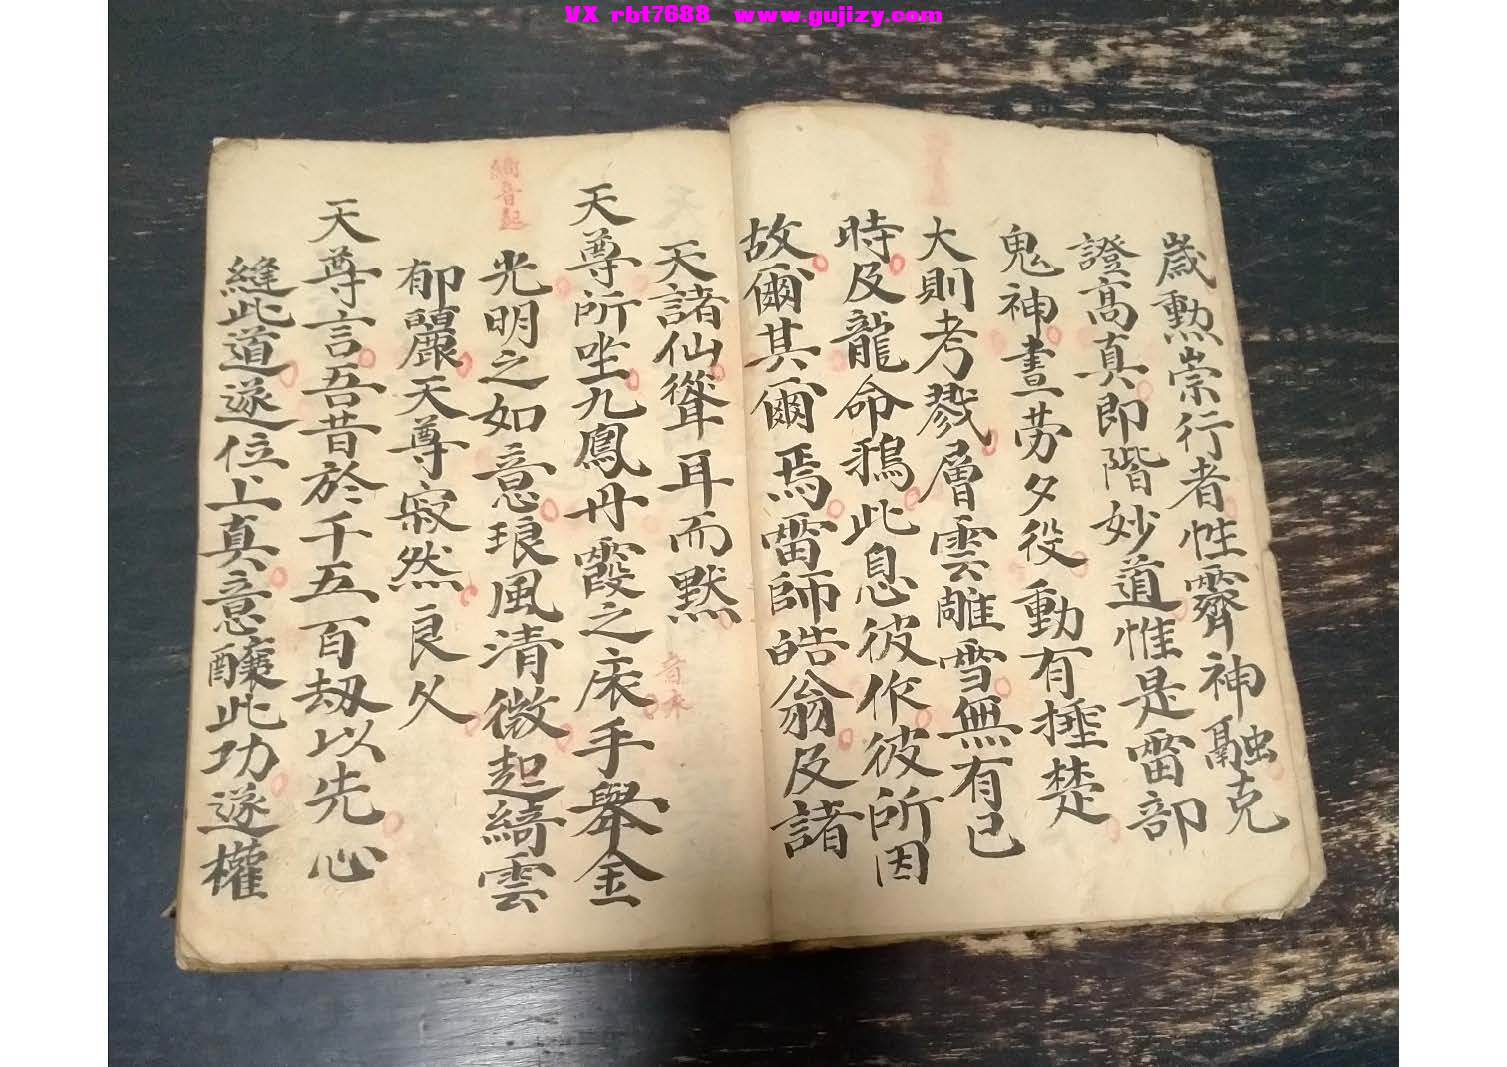 VX rbt7688 www.gujizy.com
歲勲崇行者性霽神融克
證高真即階妙道惟是雷部
鬼神晝劳夕役動有捶楚
大則考戮層雲雕雪無有已
時及龍命鴉此息彼作彼所因
故爾其爾焉雷師皓翁及諸
天諸仙聳耳而默
天尊所坐九鳳丹霞之床手舉金
光明之如意琅風清微起綺雲
郁麗天尊寂然良久
天尊言吾昔於千五百刼以先心
縫此道遂位上真意釀此功遂權
音起